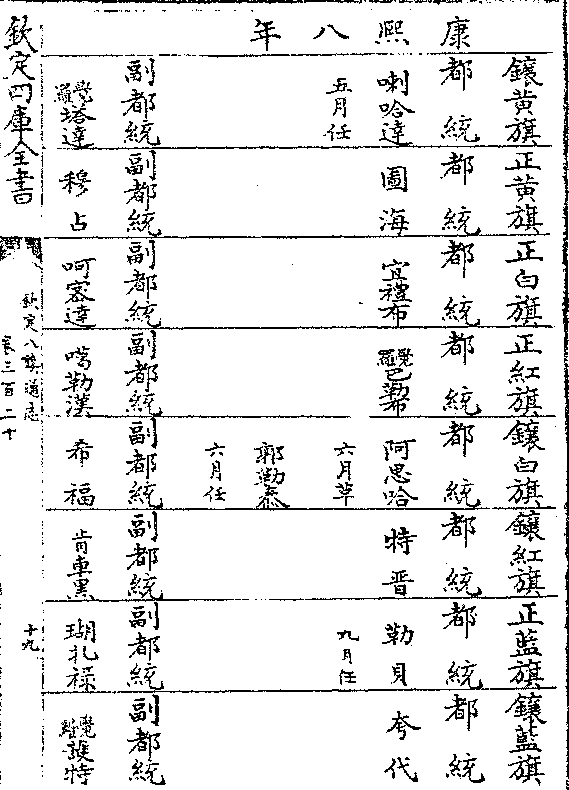 康熙八年
鑲黃旗 正黃旗 正白旗 正紅旗 鑲白旗 鑲紅旗 正藍旗 鑲藍旗
都統 都統 都統 都統 都統 都統 都統 都統
喇哈達 圖海 宜禮布 覺羅巴勒布 阿思哈 特晋 勒貝 夸代
五月任 六月革 九月任
郭勒泰
六月任
副都統 副都統 副都統 副都統 副都統 副都統 副都統 副都統
覺羅塔達 穆占 呵宻達 噶勒漢 希福 肯車黑 瑚扎祿 覺羅護特
欽定四庫全書
欽定八旗通志
卷三百二十
十九